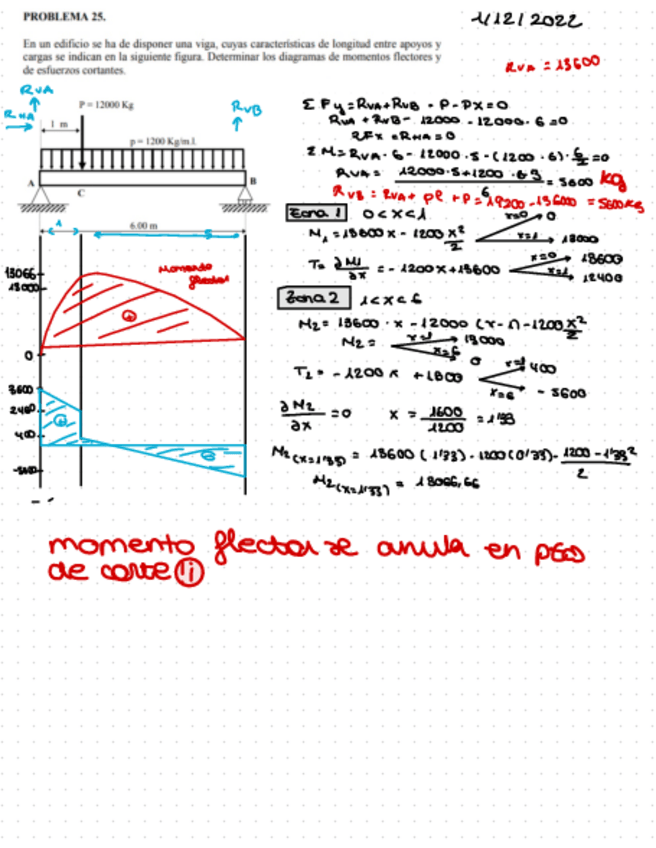 PROBLEMA 25.
1/12/2022
En un edificio se ha de disponer una viga, cuyas características de longitud entre apoyos y
cargas se indican en la siguiente figura. Determinar los diagramas de momentos flectores y
de esfuerzos cortantes.
RVA = 13600
RVA
RHA
P = 12000 Kg
RVB
1 m
p = 1200 Kg/m.l.
A
C
B
6.00 m
Σ Fy = RVA + RVB - P - PX = 0
RVA + RVB - 12000 - 1200 · 6 = 0
ΣFx = RHA = 0
Σ M = RVA · 6 - 12000 · 5 - (1200 · 6) · 6/2 = 0
kg
Zona 1 0 < x < 1
M1 = 13600 x - 1200 x²/2
x=0 0
x=1 13000
T = ∂M1/∂x = -1200 x + 13600
x=0 13600
x=1 12400
Zona 2 1 < x < 6
M2 = 13600 · x - 12000 (x - 1) - 1200 x²/2
M2 =
x=1 13000
x=6 0
x=1 400
x=6 - 5600
∂M2/∂x = 0 x = 1600/1200 = 1'33
M2(x=1'33) = 13600 (1'33) - 1200 (0'33) - 1200 - 1'33²/2
M2(x=1'33) = 13066,66
13066
13000
0
Momento
flector
+
3600
2400
400
momento flector se anula en
de corte